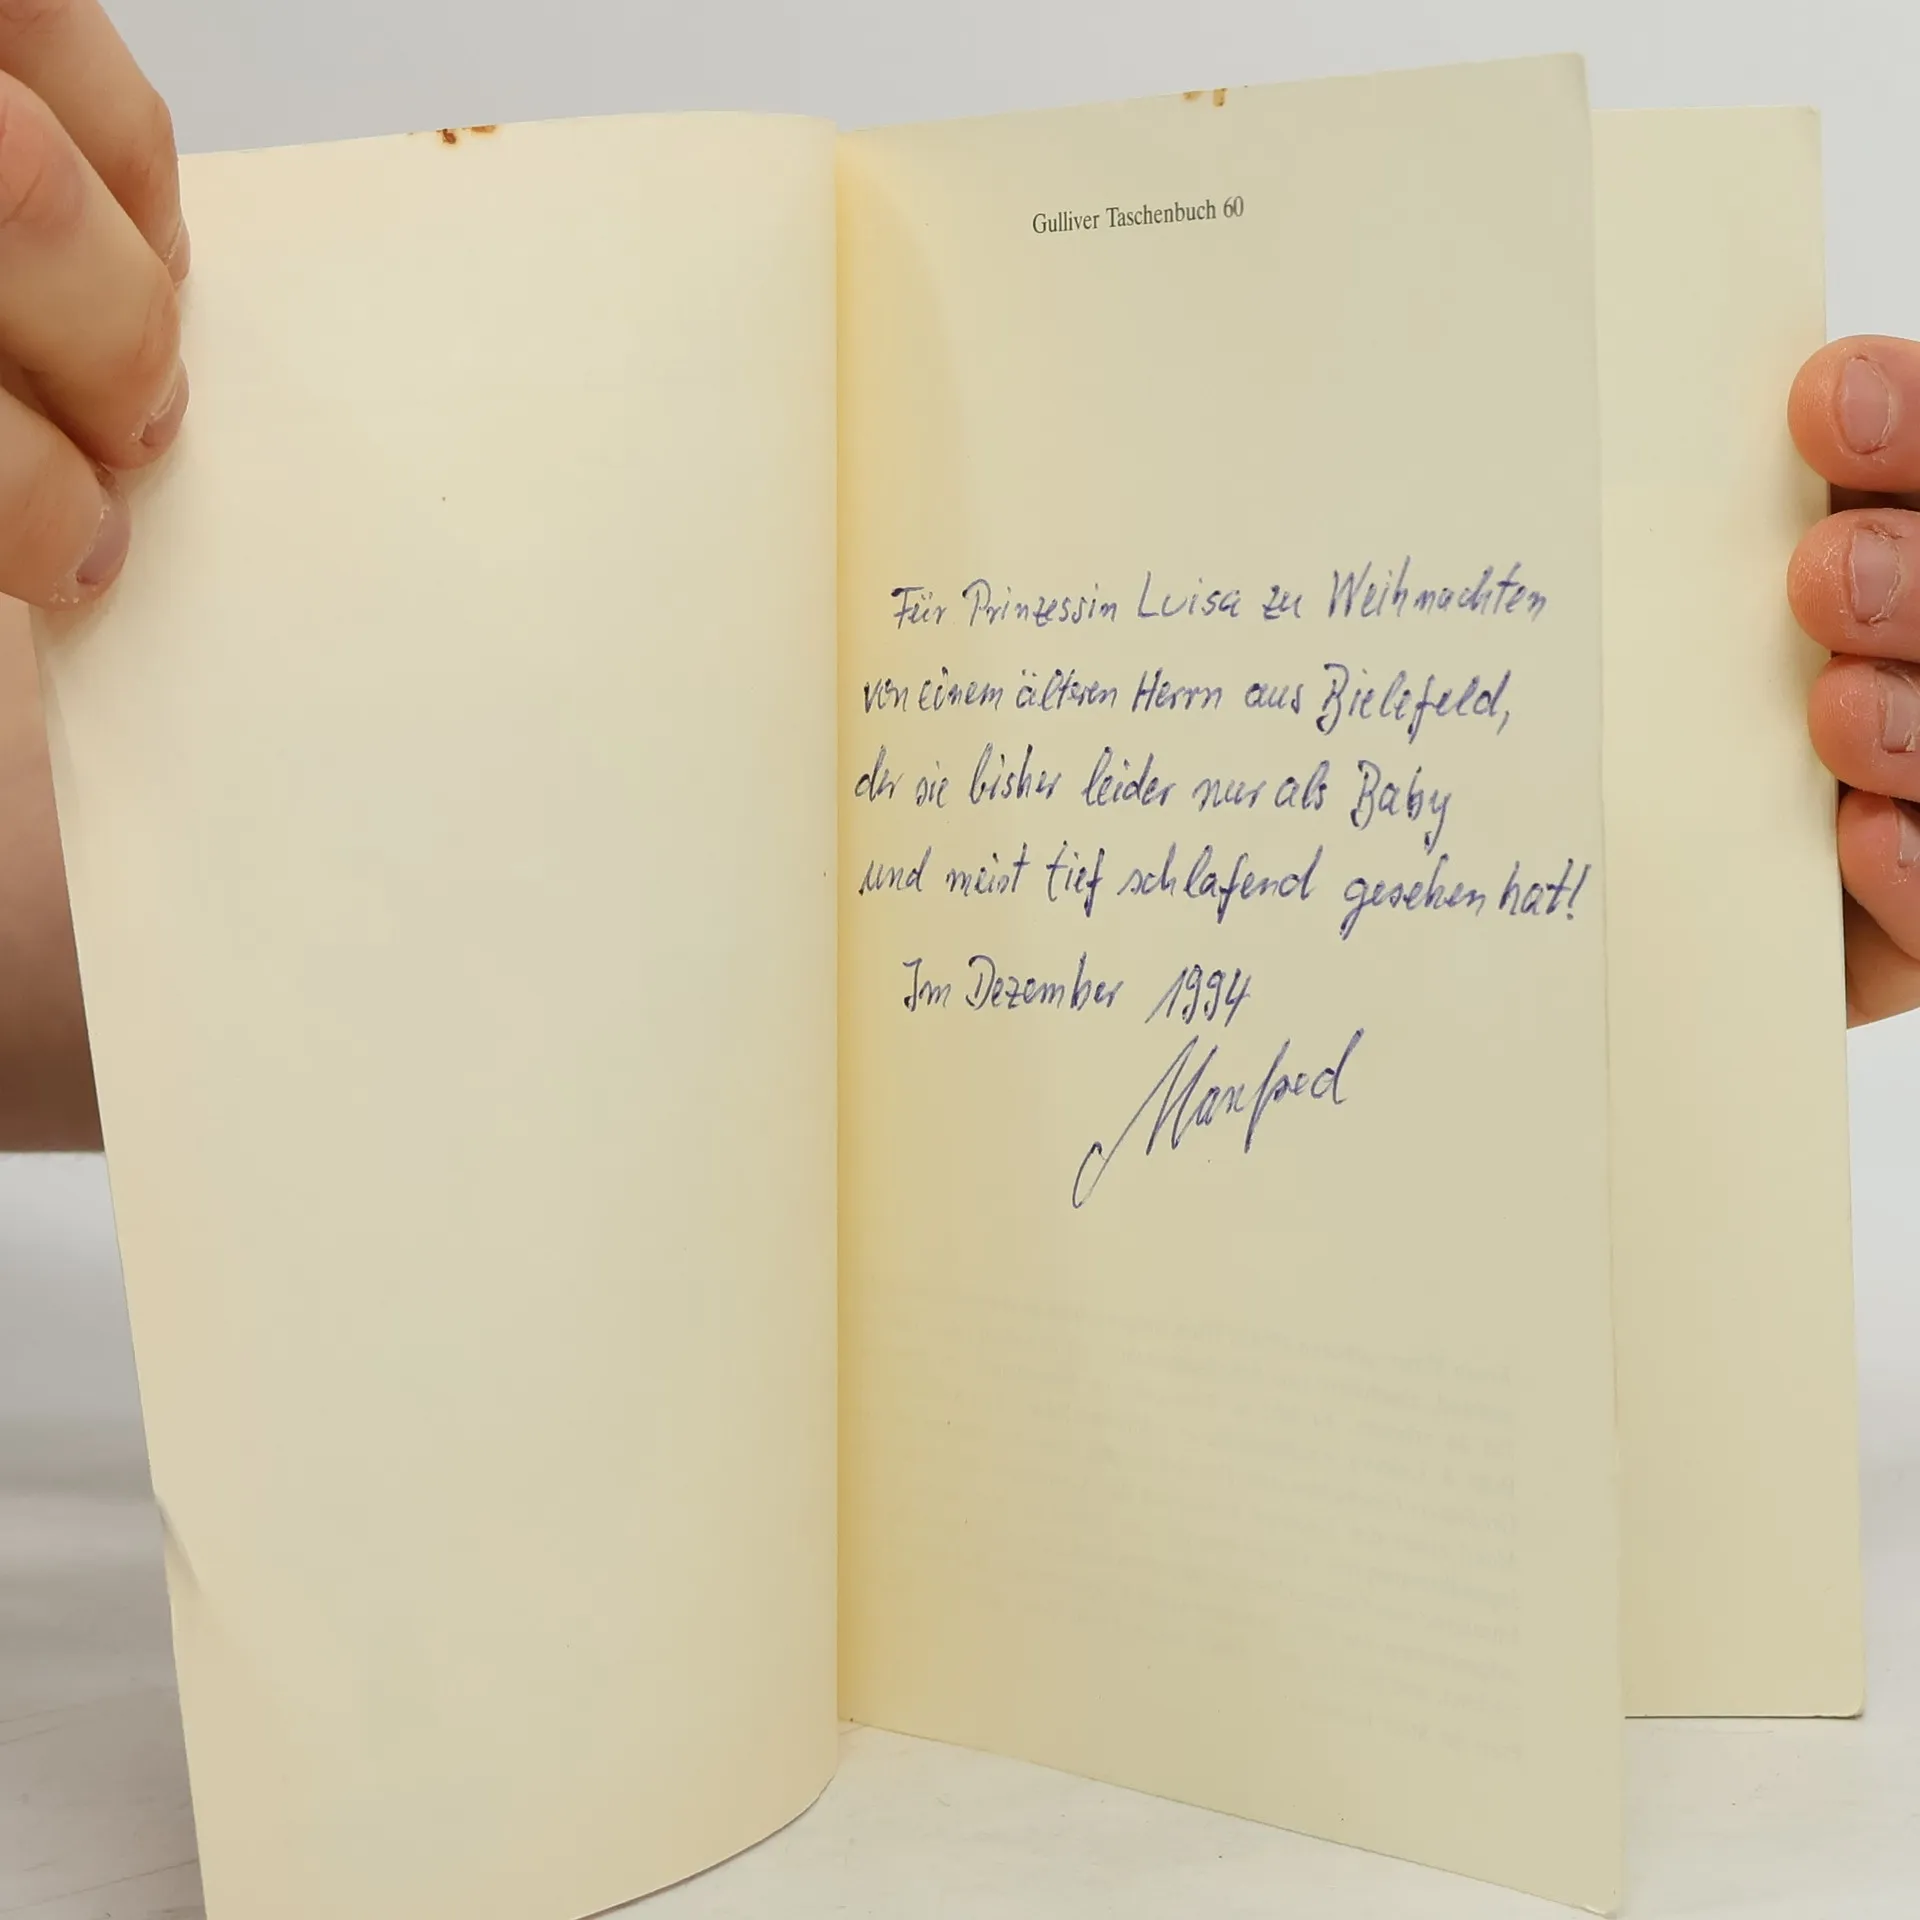 Gulliver Taschenbuch 60
Für Prinzessin Luisa zu Weihnachten
von einem älteren Herrn aus Bielefeld,
der sie bisher leider nur als Baby
und meist tief schlafend gesehen hat!
Im Dezember 1994
Manfred